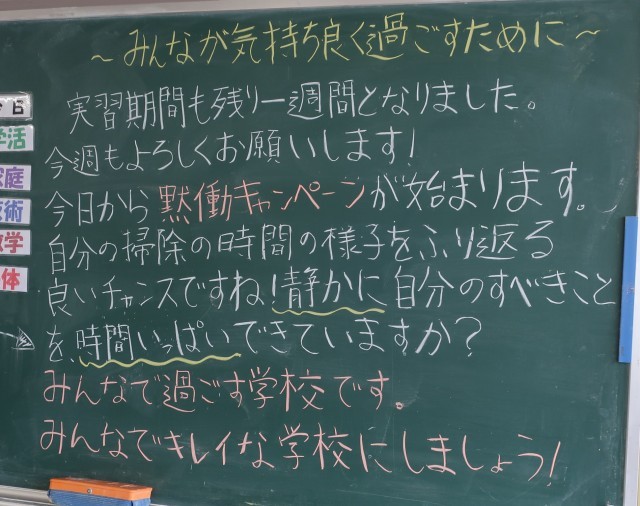 ～みんなが気持ち良く過ごすために～
実習期間も残り一週間となりました。
今週もよろしくお願いします！
今日から黙働キャンペーンが始まります。
自分の掃除の時間の様子をふり返る
良いチャンスですね！静かに自分のすべきこと
を、時間いっぱいできていますか？
みんなで過ごす学校です。
みんなでキレイな学校にしましょう！
学活
家庭
技術
数学
体